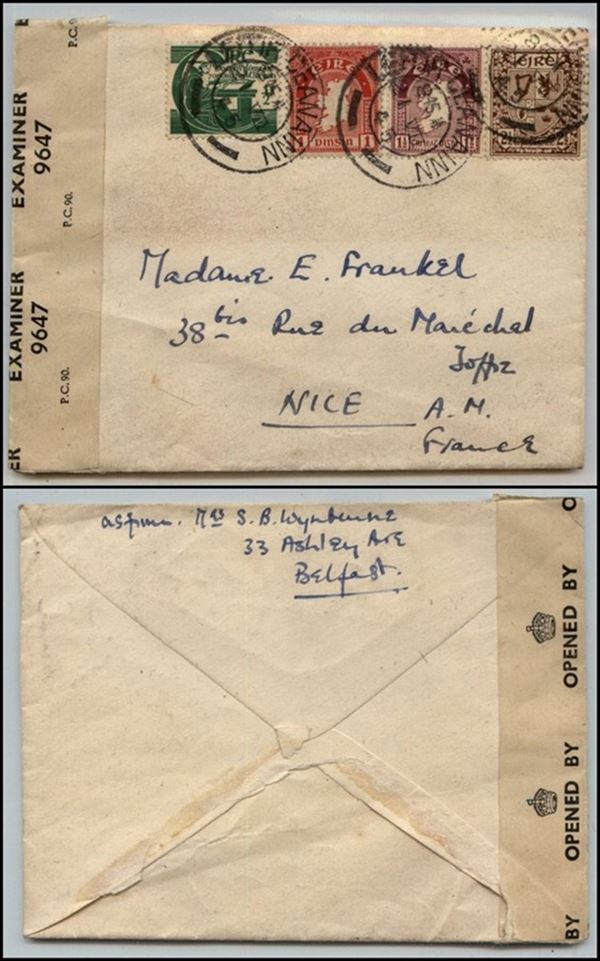 EXAMINER 9647
P.C. 90.
EXAMINER 9647
P.C. 90.
ER
ÉIRE
ÉIRE
1 1
ÉIRE
ÉIRE
Madame. E. Frankel
38 bis Rue du Maréchal
Joffre
NICE A. M.
France
Mrs S. B.
33 Ashley Ave
Belfast.
OPENED BY
OPENED BY
BY